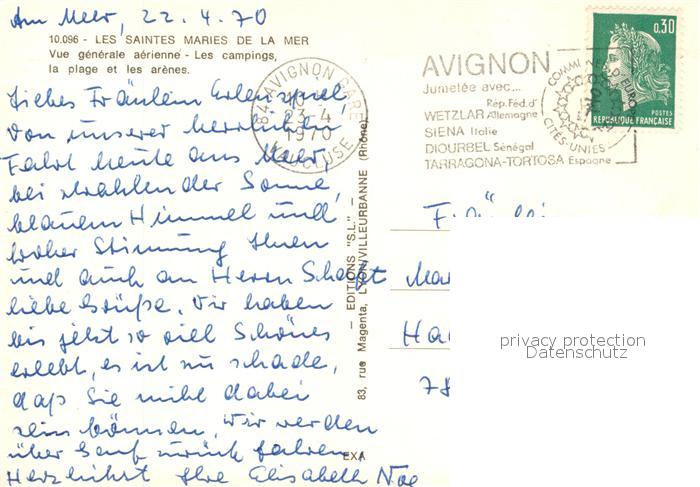 Am Meer, 22.4.70
10.096 - LES SAINTES MARIES DE LA MER
Vue générale aérienne - Les campings,
la plage et les arènes.
Liebes Fräulein
Von unserer herrlichen
Fahrt heute ans Meer,
bei strahlender Sonne,
blauem Himmel und
froher Stimmung Ihnen
und auch an Herrn
liebe Grüße. Wir haben
bis jetzt so viel Schönes
erlebt, es ist zu schade,
daß Sie nicht dabei
sein können. Wir werden
über Genf zurück fahren.
Herzlichst Ihre Elisabeth
84 AVIGNON GARE
23-4
1970
VAUCLUSE
AVIGNON
Jumelée avec...
Rép. Féd. d'
WETZLAR Allemagne
SIENA Italie
DIOURBEL Sénégal
TARRAGONA-TORTOSA Espagne
CITÉS-UNIES
0,30
POSTES
REPUBLIQUE FRANÇAISE
— EDITIONS "S.L." —
83, rue Magenta, LYON/VILLEURBANNE (Rhône)
EXA
Ha
78
privacy protection
Datenschutz